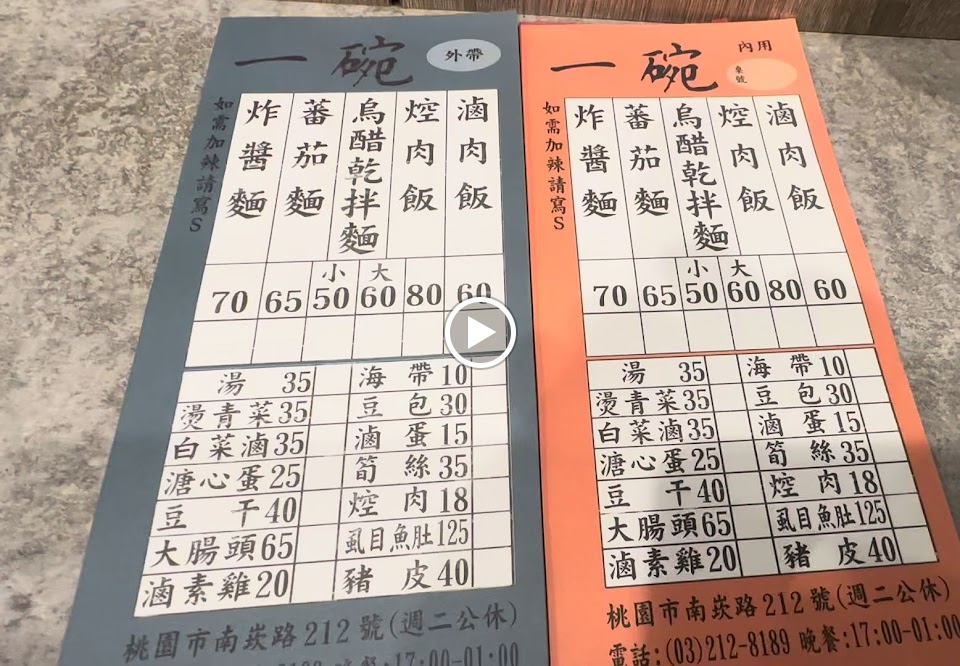 一碗
外帶
如需加辣請寫S
滷肉飯
焢肉飯
烏醋乾拌麵
蕃茄麵
炸醬麵
小 大
70 65 50 60 80 60
湯 35 海帶 10
燙青菜 35 豆包 30
白菜滷 35 滷蛋 15
溏心蛋 25 筍絲 35
豆干 40 焢肉 18
大腸頭 65 虱目魚肚 125
滷素雞 20 豬皮 40
桃園市南崁路212號(週二公休)
晚餐:17:00-01:00
一碗
內用
桌號
如需加辣請寫S
滷肉飯
焢肉飯
烏醋乾拌麵
蕃茄麵
炸醬麵
小 大
70 65 50 60 80 60
湯 35 海帶 10
燙青菜 35 豆包 30
白菜滷 35 滷蛋 15
溏心蛋 25 筍絲 35
豆干 40 焢肉 18
大腸頭 65 虱目魚肚 125
滷素雞 20 豬皮 40
桃園市南崁路212號(週二公休)
電話:(03)212-8189 晚餐:17:00-01:00